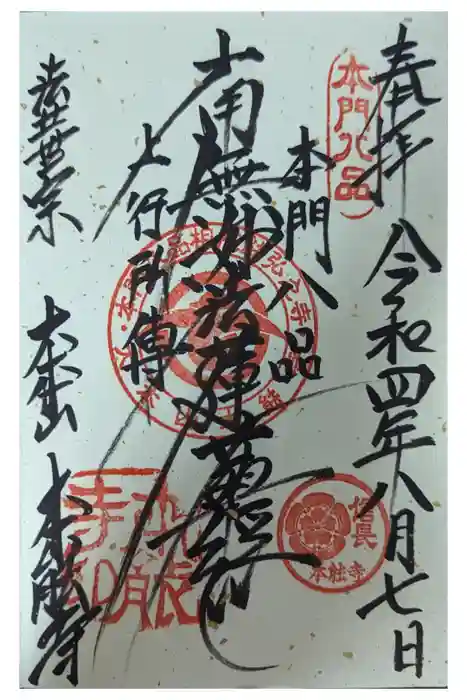 奉拝 令和四年八月七日
本門八品
本門八品
南無妙法蓮華経
上行所傳
法華宗
大本山 本能寺
信長
本能寺
本能寺印